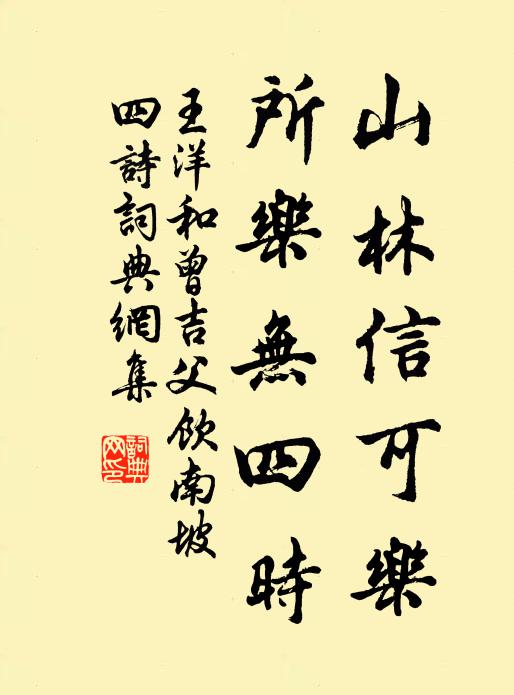 山林信可樂
所樂無四時
王洋和曾吉父飲南坡
四詩詞典網集
詞典
网印